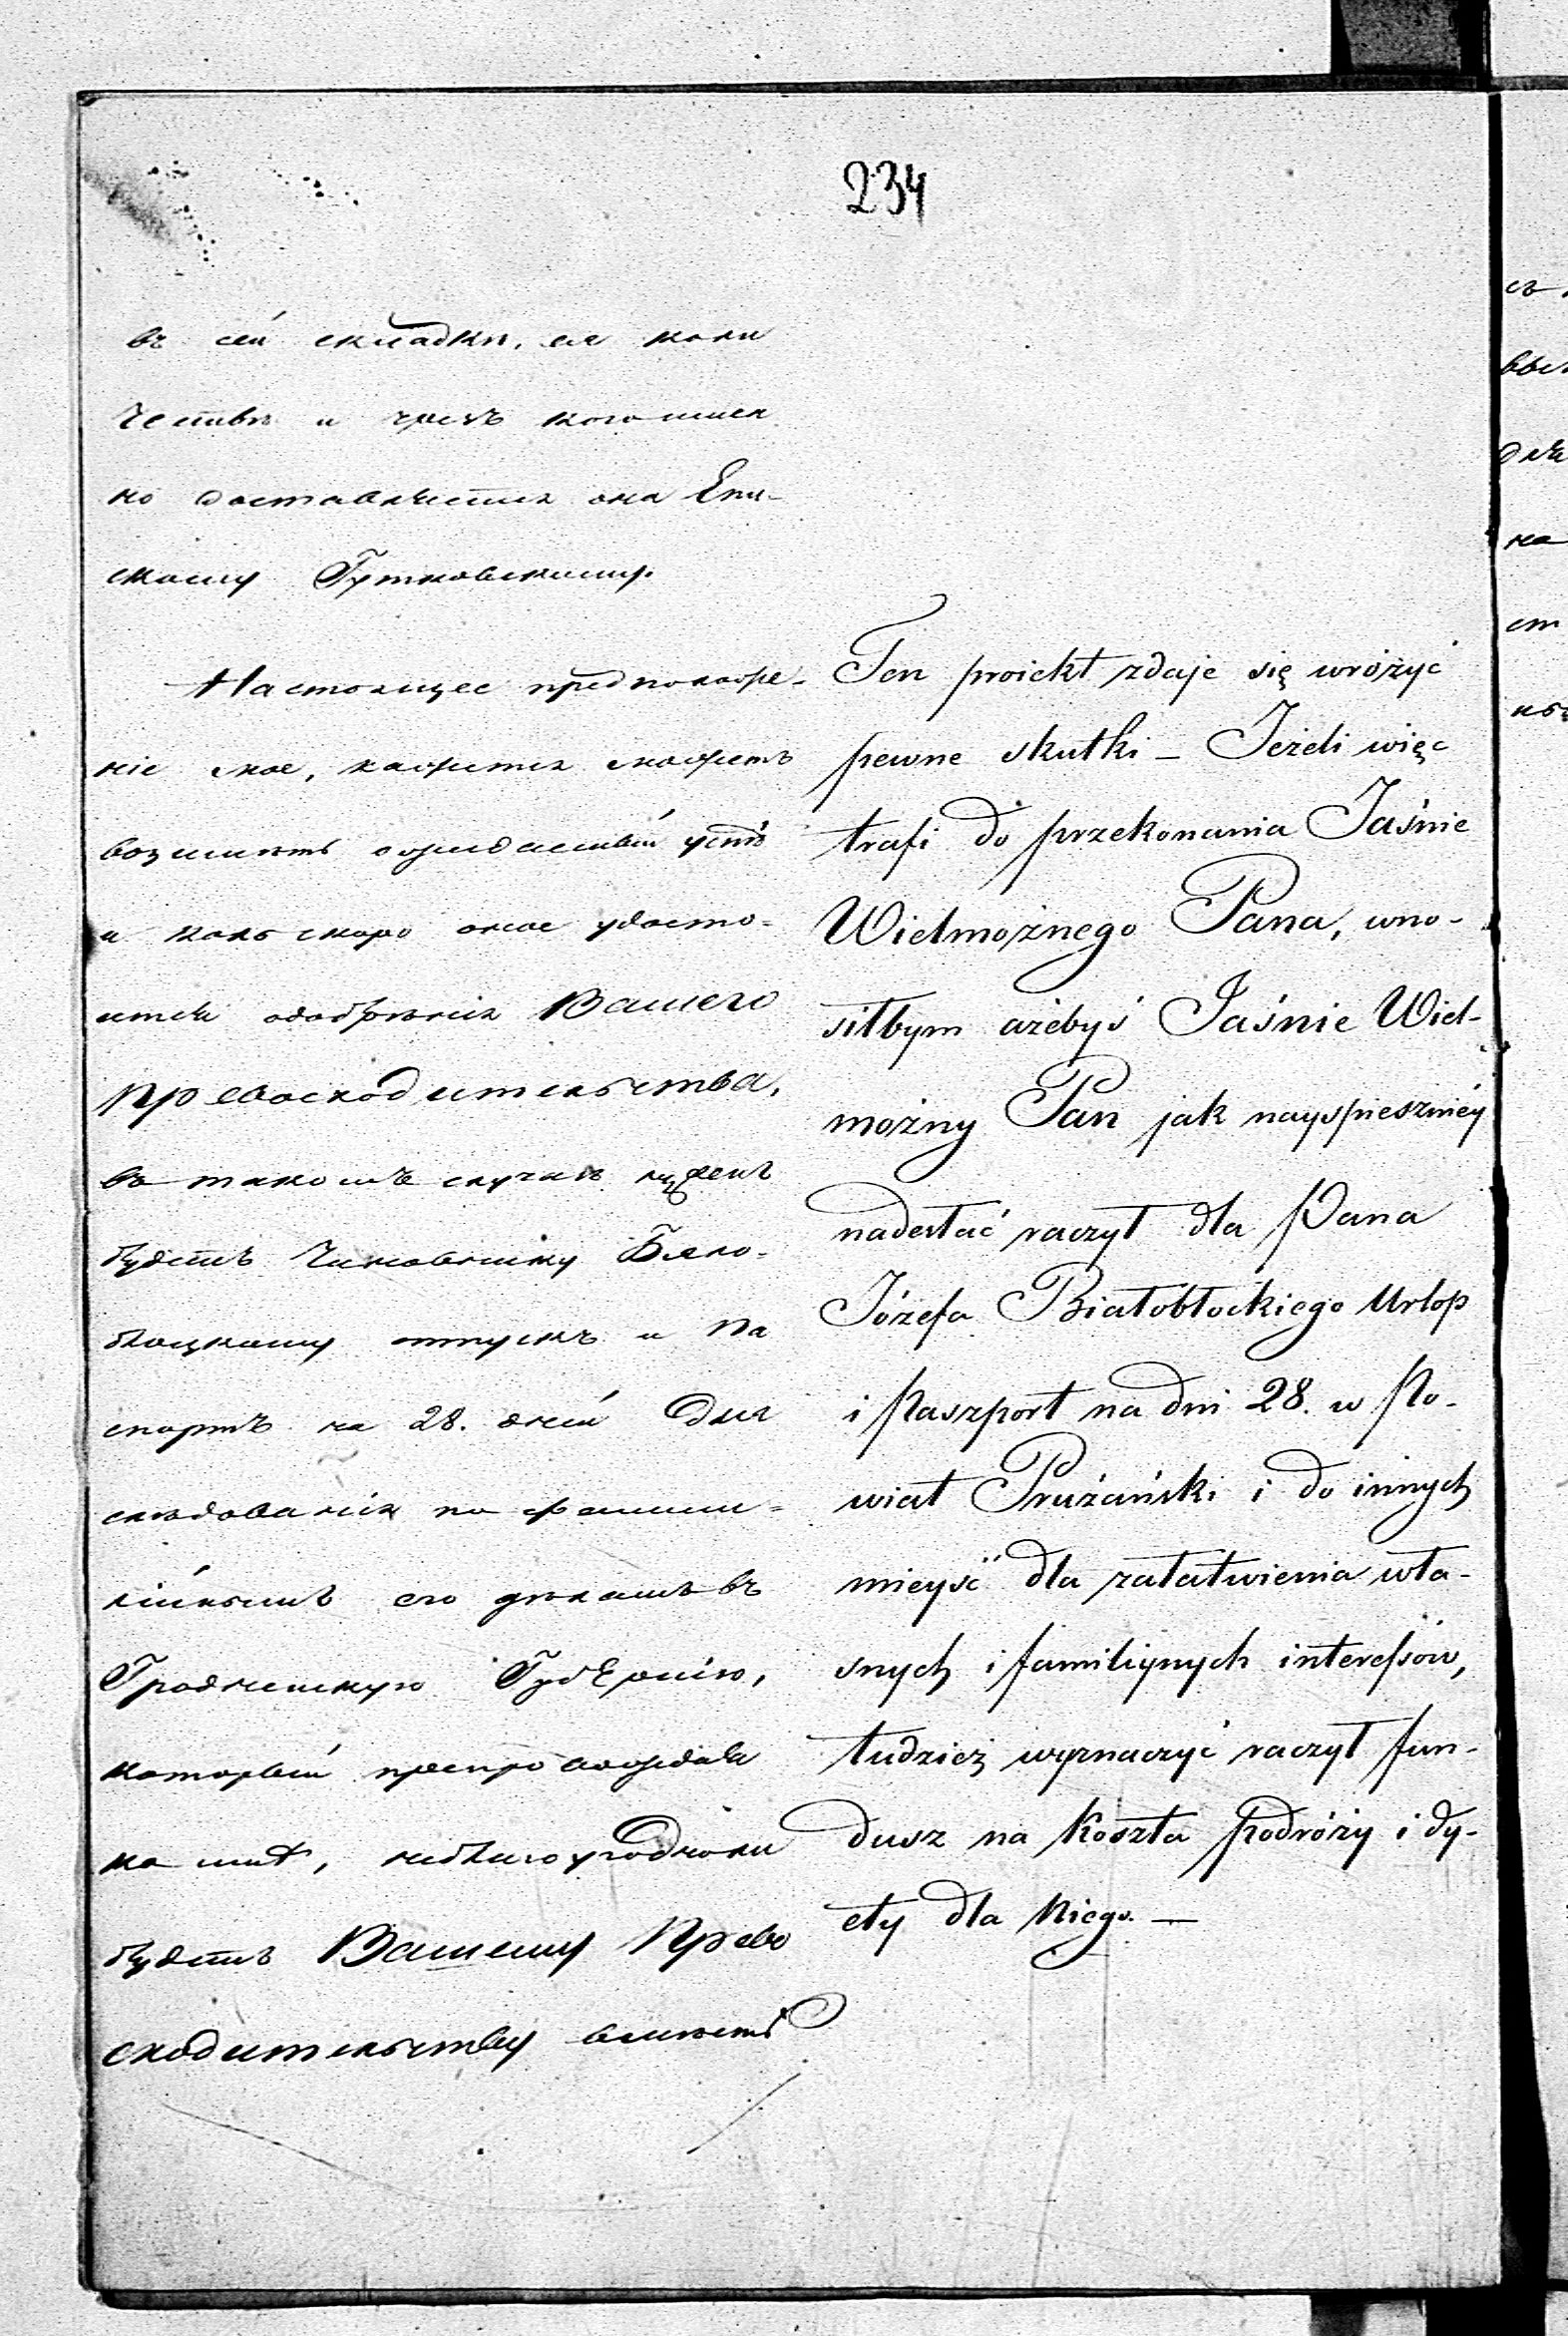 234
въ сей складки, ея коли
чества и чрезъ кого имен
но доставляется она Епи-
скопу Гутковскому.
Настоящее предположе-
ніе мое, кажется можетъ
возъимѣть ожидаемый успѣ
и коль скоро оное удосто-
ится одобрѣнія Вашего
Превосходительства,
въ такомъ случаѣ нуженъ
будетъ Чиновнику Бяло-
блоцкому отпускъ и Па
спортъ на 28. дней для
слѣдованія по фамили-
лійнымъ его дѣламъ въ
Гродненскую Губернію,
который препровождая
ко мнѣ, неблагоугодноли
будетъ Вашему Прево
сходительству велѣть
Ten proiekt zdaje się wróżyć
pewne skutki — Jeżeli więc
trafi do przekonania Jaśnie
Wielmożnego Pana, wno-
siłbym ażebyś Jaśnie Wiel-
możny Pan jak nayspieszniéy
nadesłać raczył dla Pana
Józefa Białobłockiego Urlop
i Paszport na dni 28. w Po-
wiat Prużański i do innych
mieysć dla załatwienia wła-
snych i familiynych interessów,
tudzież wyznaczyć raczył fun-
dusz na Koszta Podróży i dy-
ety dla Niego. —
съ
выс
для
на
ст